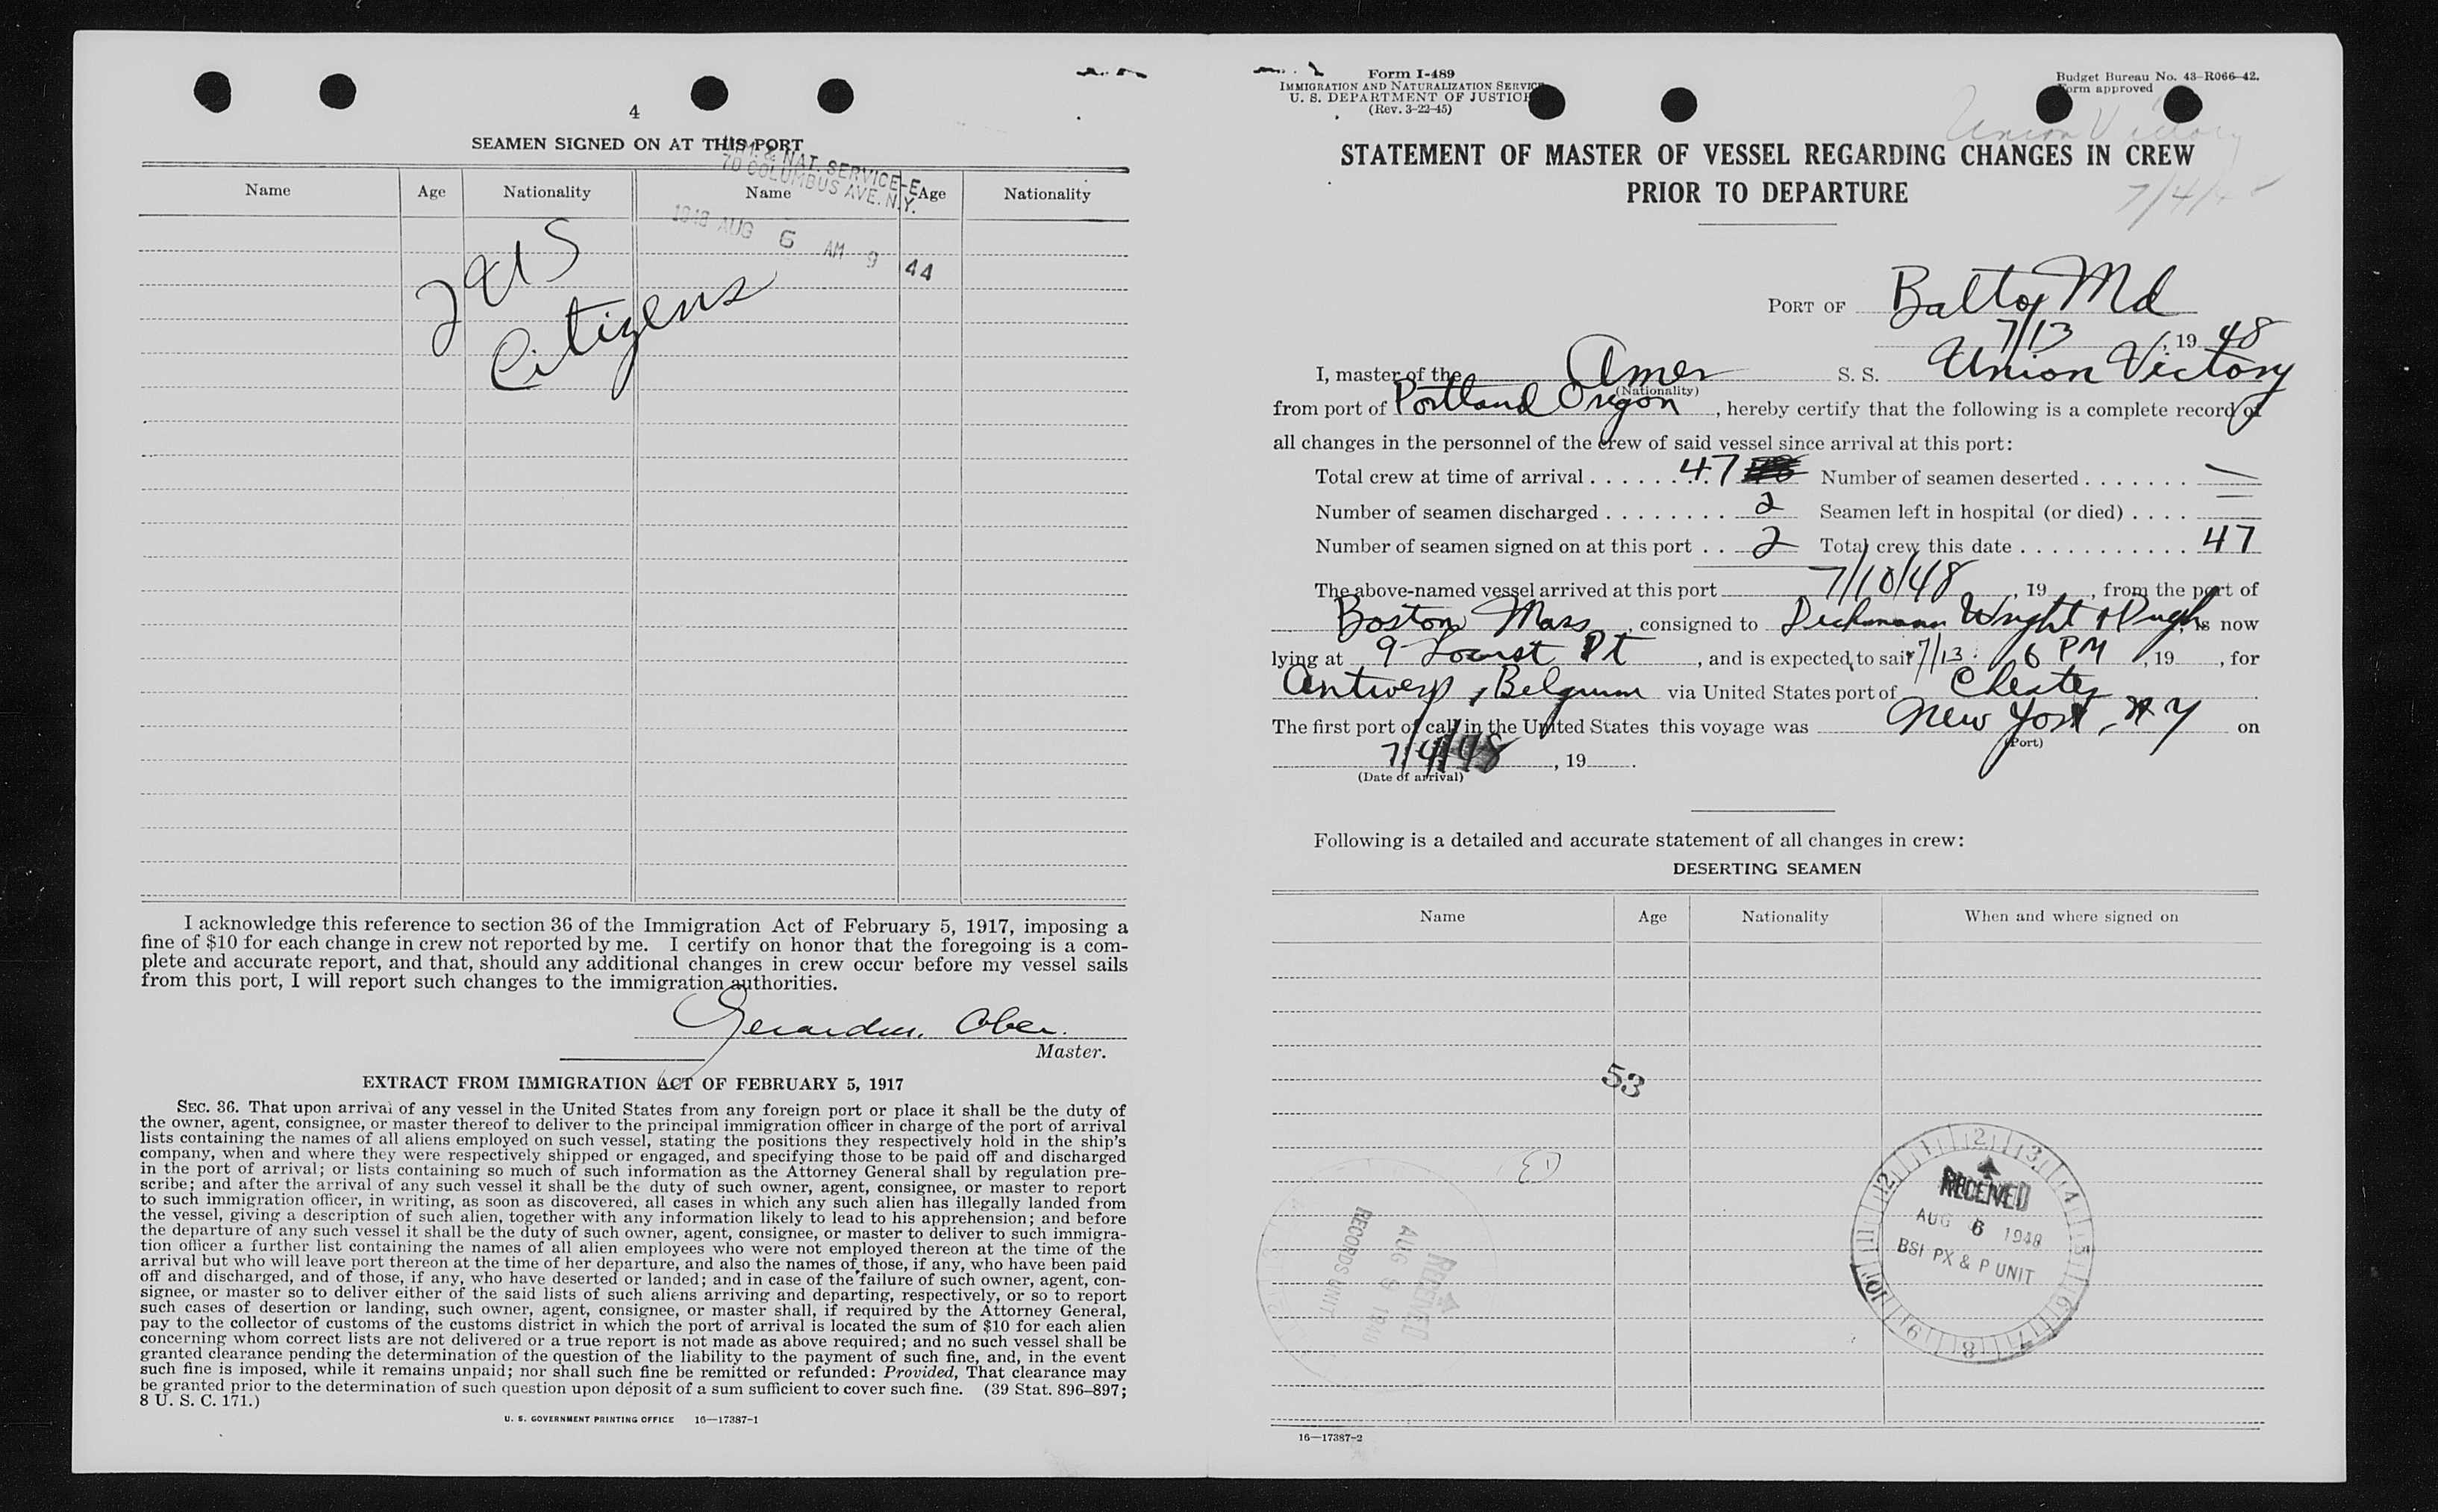 4
SEAMEN SIGNED ON AT THIS PORT
IMM. & NAT. SERVICE-E
70 COLUMBUS AVE. N.Y.
1948 AUG 6 AM 9 44
Name Age Nationality Name Age Nationality
2 US
Citizens
I acknowledge this reference to section 36 of the Immigration Act of February 5, 1917, imposing a
fine of $10 for each change in crew not reported by me. I certify on honor that the foregoing is a com-
plete and accurate report, and that, should any additional changes in crew occur before my vessel sails
from this port, I will report such changes to the immigration authorities.
Master.
EXTRACT FROM IMMIGRATION ACT OF FEBRUARY 5, 1917
SEC. 36. That upon arrival of any vessel in the United States from any foreign port or place it shall be the duty of
the owner, agent, consignee, or master thereof to deliver to the principal immigration officer in charge of the port of arrival
lists containing the names of all aliens employed on such vessel, stating the positions they respectively hold in the ship's
company, when and where they were respectively shipped or engaged, and specifying those to be paid off and discharged
in the port of arrival; or lists containing so much of such information as the Attorney General shall by regulation pre-
scribe; and after the arrival of any such vessel it shall be the duty of such owner, agent, consignee, or master to report
to such immigration officer, in writing, as soon as discovered, all cases in which any such alien has illegally landed from
the vessel, giving a description of such alien, together with any information likely to lead to his apprehension; and before
the departure of any such vessel it shall be the duty of such owner, agent, consignee, or master to deliver to such immigra-
tion officer a further list containing the names of all alien employees who were not employed thereon at the time of the
arrival but who will leave port thereon at the time of her departure, and also the names of those, if any, who have been paid
off and discharged, and of those, if any, who have deserted or landed; and in case of the failure of such owner, agent, con-
signee, or master so to deliver either of the said lists of such aliens arriving and departing, respectively, or so to report
such cases of desertion or landing, such owner, agent, consignee, or master shall, if required by the Attorney General,
pay to the collector of customs of the customs district in which the port of arrival is located the sum of $10 for each alien
concerning whom correct lists are not delivered or a true report is not made as above required; and no such vessel shall be
granted clearance pending the determination of the question of the liability to the payment of such fine, and, in the event
such fine is imposed, while it remains unpaid; nor shall such fine be remitted or refunded: Provided, That clearance may
be granted prior to the determination of such question upon deposit of a sum sufficient to cover such fine. (39 Stat. 896–897;
8 U. S. C. 171.)
U. S. GOVERNMENT PRINTING OFFICE 16—17387-1
Form I-489
IMMIGRATION AND NATURALIZATION SERVICE
U. S. DEPARTMENT OF JUSTICE
(Rev. 3-22-45)
Budget Bureau No. 43-R066-42.
Form approved
Union Victory
7/4/48
STATEMENT OF MASTER OF VESSEL REGARDING CHANGES IN CREW
PRIOR TO DEPARTURE
PORT OF Balto, Md
7/13, 19 48
I, master of the Amer S. S. Union Victory
(Nationality)
from port of Portland Oregon, hereby certify that the following is a complete record of
all changes in the personnel of the crew of said vessel since arrival at this port:
Total crew at time of arrival . . . . . . . 47 Number of seamen deserted . . . . . . . —
Number of seamen discharged . . . . . . . . 2 Seamen left in hospital (or died) . . . . —
Number of seamen signed on at this port . . 2 Total crew this date . . . . . . . . . . . 47
The above-named vessel arrived at this port 7/10/48, 19 , from the port of
Boston Mass, consigned to Wright & Pugh, is now
lying at 9 Locust Pt, and is expected to sail 7/13 6 PM, 19 , for
Antwerp, Belgium via United States port of Chester.
The first port of call in the United States this voyage was New York, NY on
(Port)
7/4/48, 19 .
(Date of arrival)
Following is a detailed and accurate statement of all changes in crew:
DESERTING SEAMEN
Name Age Nationality When and where signed on
53
RECEIVED
AUG 6 1948
BSI PX & P UNIT
RECEIVED
AUG 9 1948
RECORDS UNIT
16—17387-2